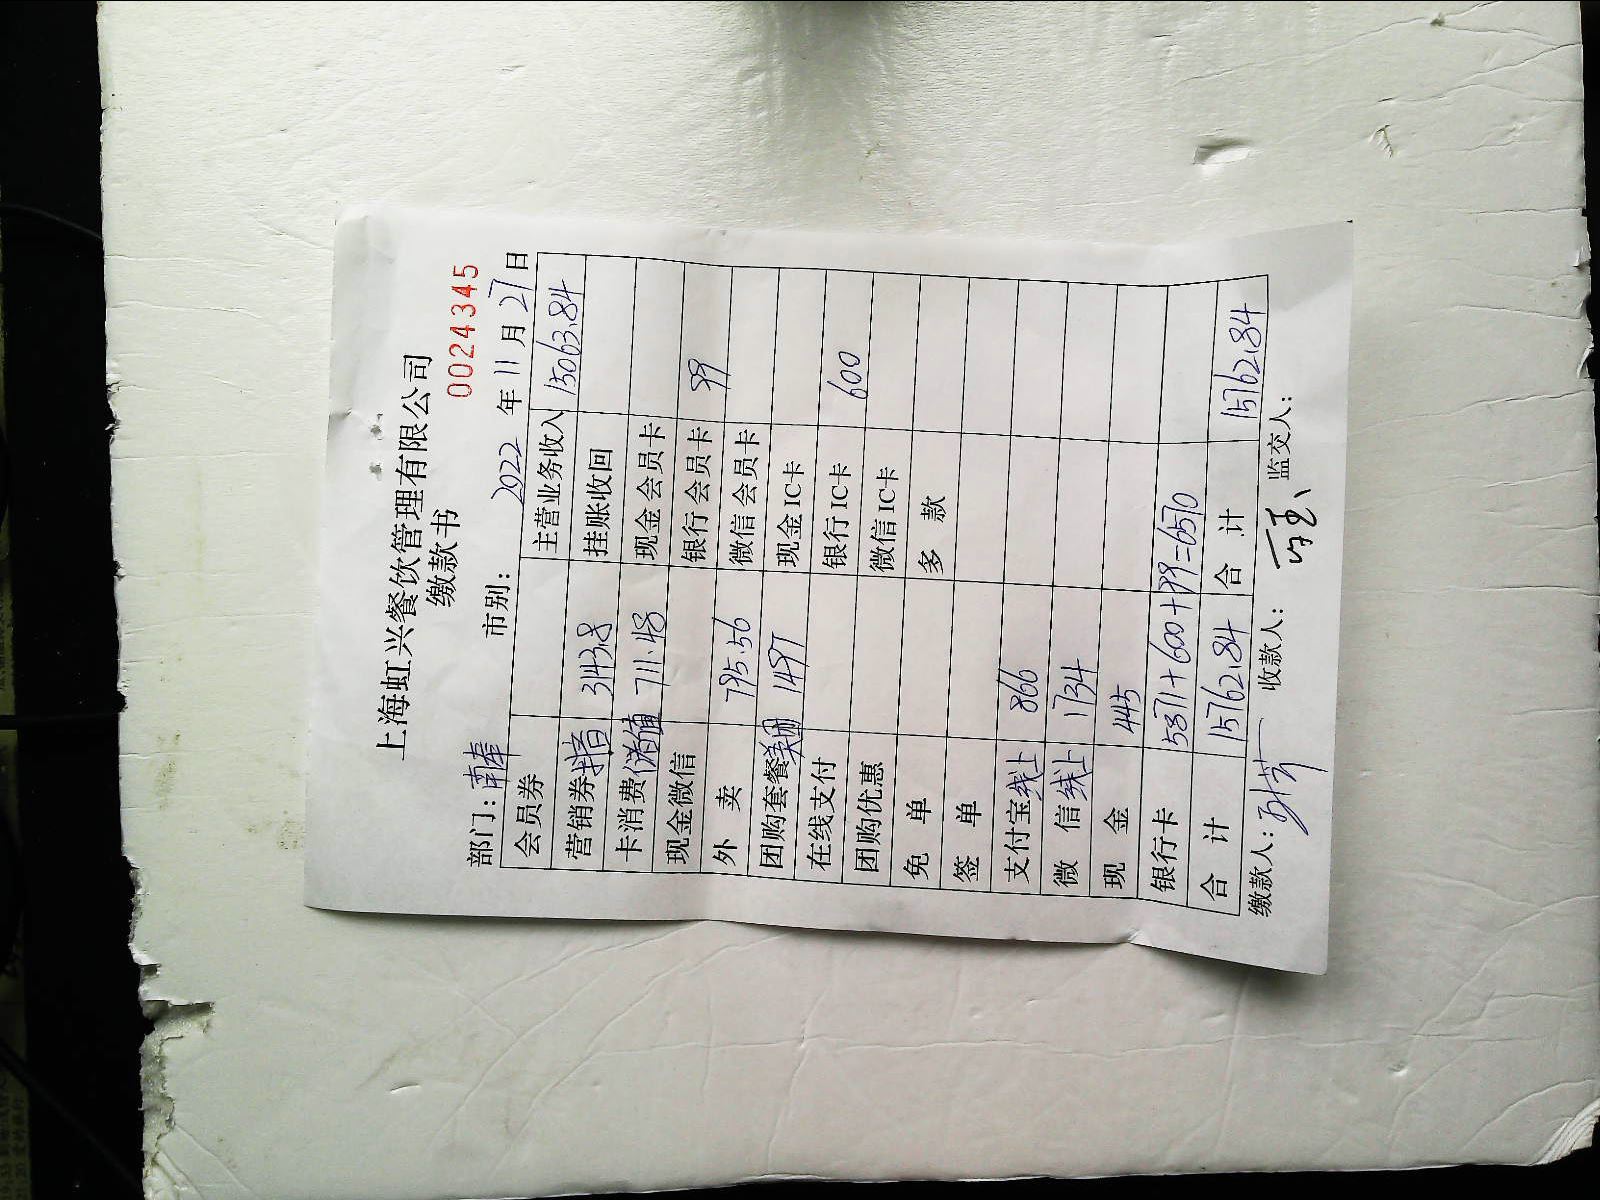 上海虹兴餐饮管理有限公司
缴款书
0024345
部门：南奉 市别： 2022 年 11 月 27 日
会员券 主营业务收入 15063.84
营销券抖音 3143.8 挂账收回
卡消费储值 711.48 现金会员卡
现金微信 银行会员卡 99
外 卖 795.56 微信会员卡
团购套餐美团 1497 现金IC卡
在线支付 银行IC卡 600
团购优惠 微信IC卡
免 单 多 款
签 单
支付宝线上 866
微 信线上 1734
现 金 445
银行卡 5871+600+99=6570
合 计 15762.84 合 计 15762.84
缴款人： 收款人： 监交人：